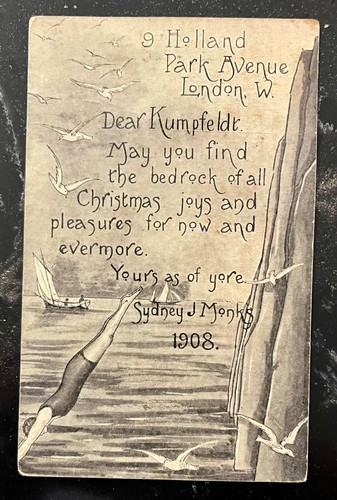 9 Holland
Park Avenue
London. W.
Dear Kumpfeldt.
May you find
the bedrock of all
Christmas joys and
pleasures for now and
evermore.
Yours as of yore.
Sydney J Monks
1908.